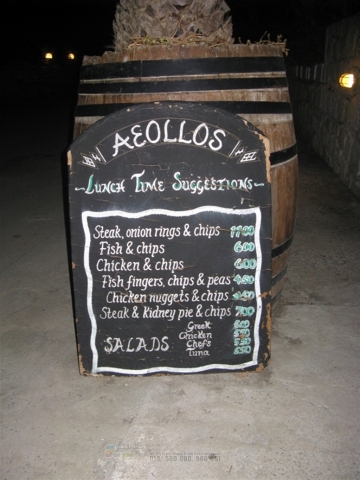 AEOLLOS
Lunch Time Suggestions
Steak, onion rings & chips
Fish & chips 600
Chicken & chips 600
Fish fingers, chips & peas
Chicken nuggets & chips
Steak & Kidney pie & chips 700
SALADS
Greek
Chicken
Chef's
Tuna